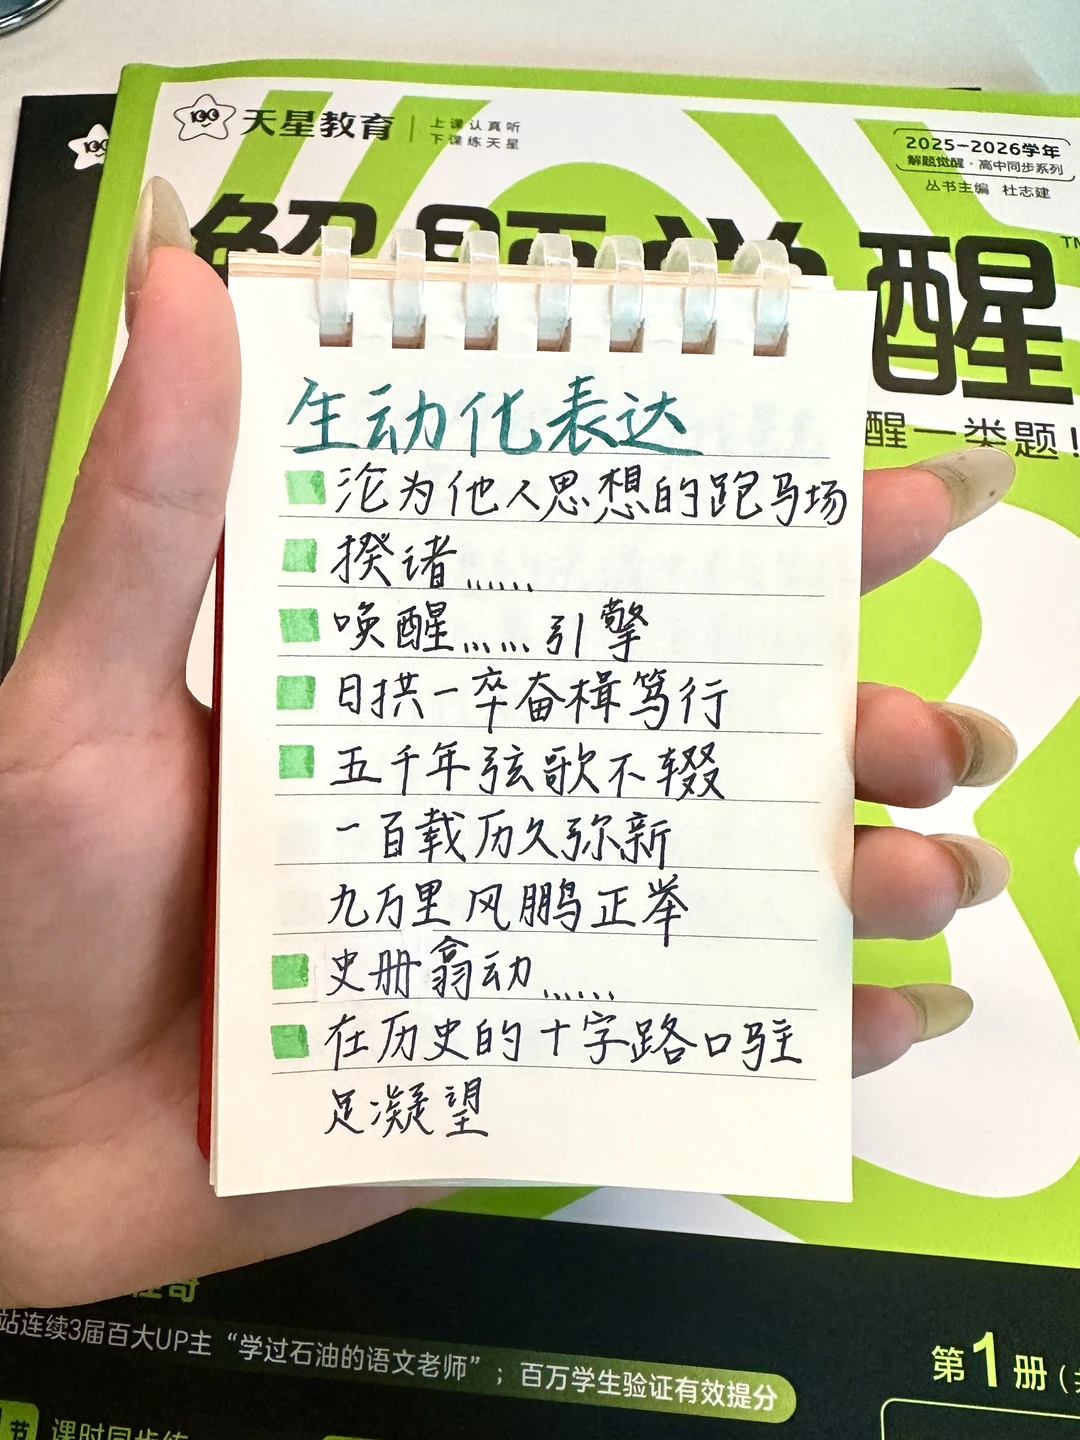 天星教育
上课认真听
下课练天星
2025-2026学年
解题觉醒·高中同步系列
丛书主编 杜志建
解题觉醒
TM
醒一类题!
生动化表达
沦为他人思想的跑马场
揆诸……
唤醒……引擎
日拱一卒奋楫笃行
五千年弦歌不辍
一百载历久弥新
九万里风鹏正举
史册翕动……
在历史的十字路口驻
足凝望
站连续3届百大UP主“学过石油的语文老师”;百万学生验证有效提分
第1册
节
课时同步练